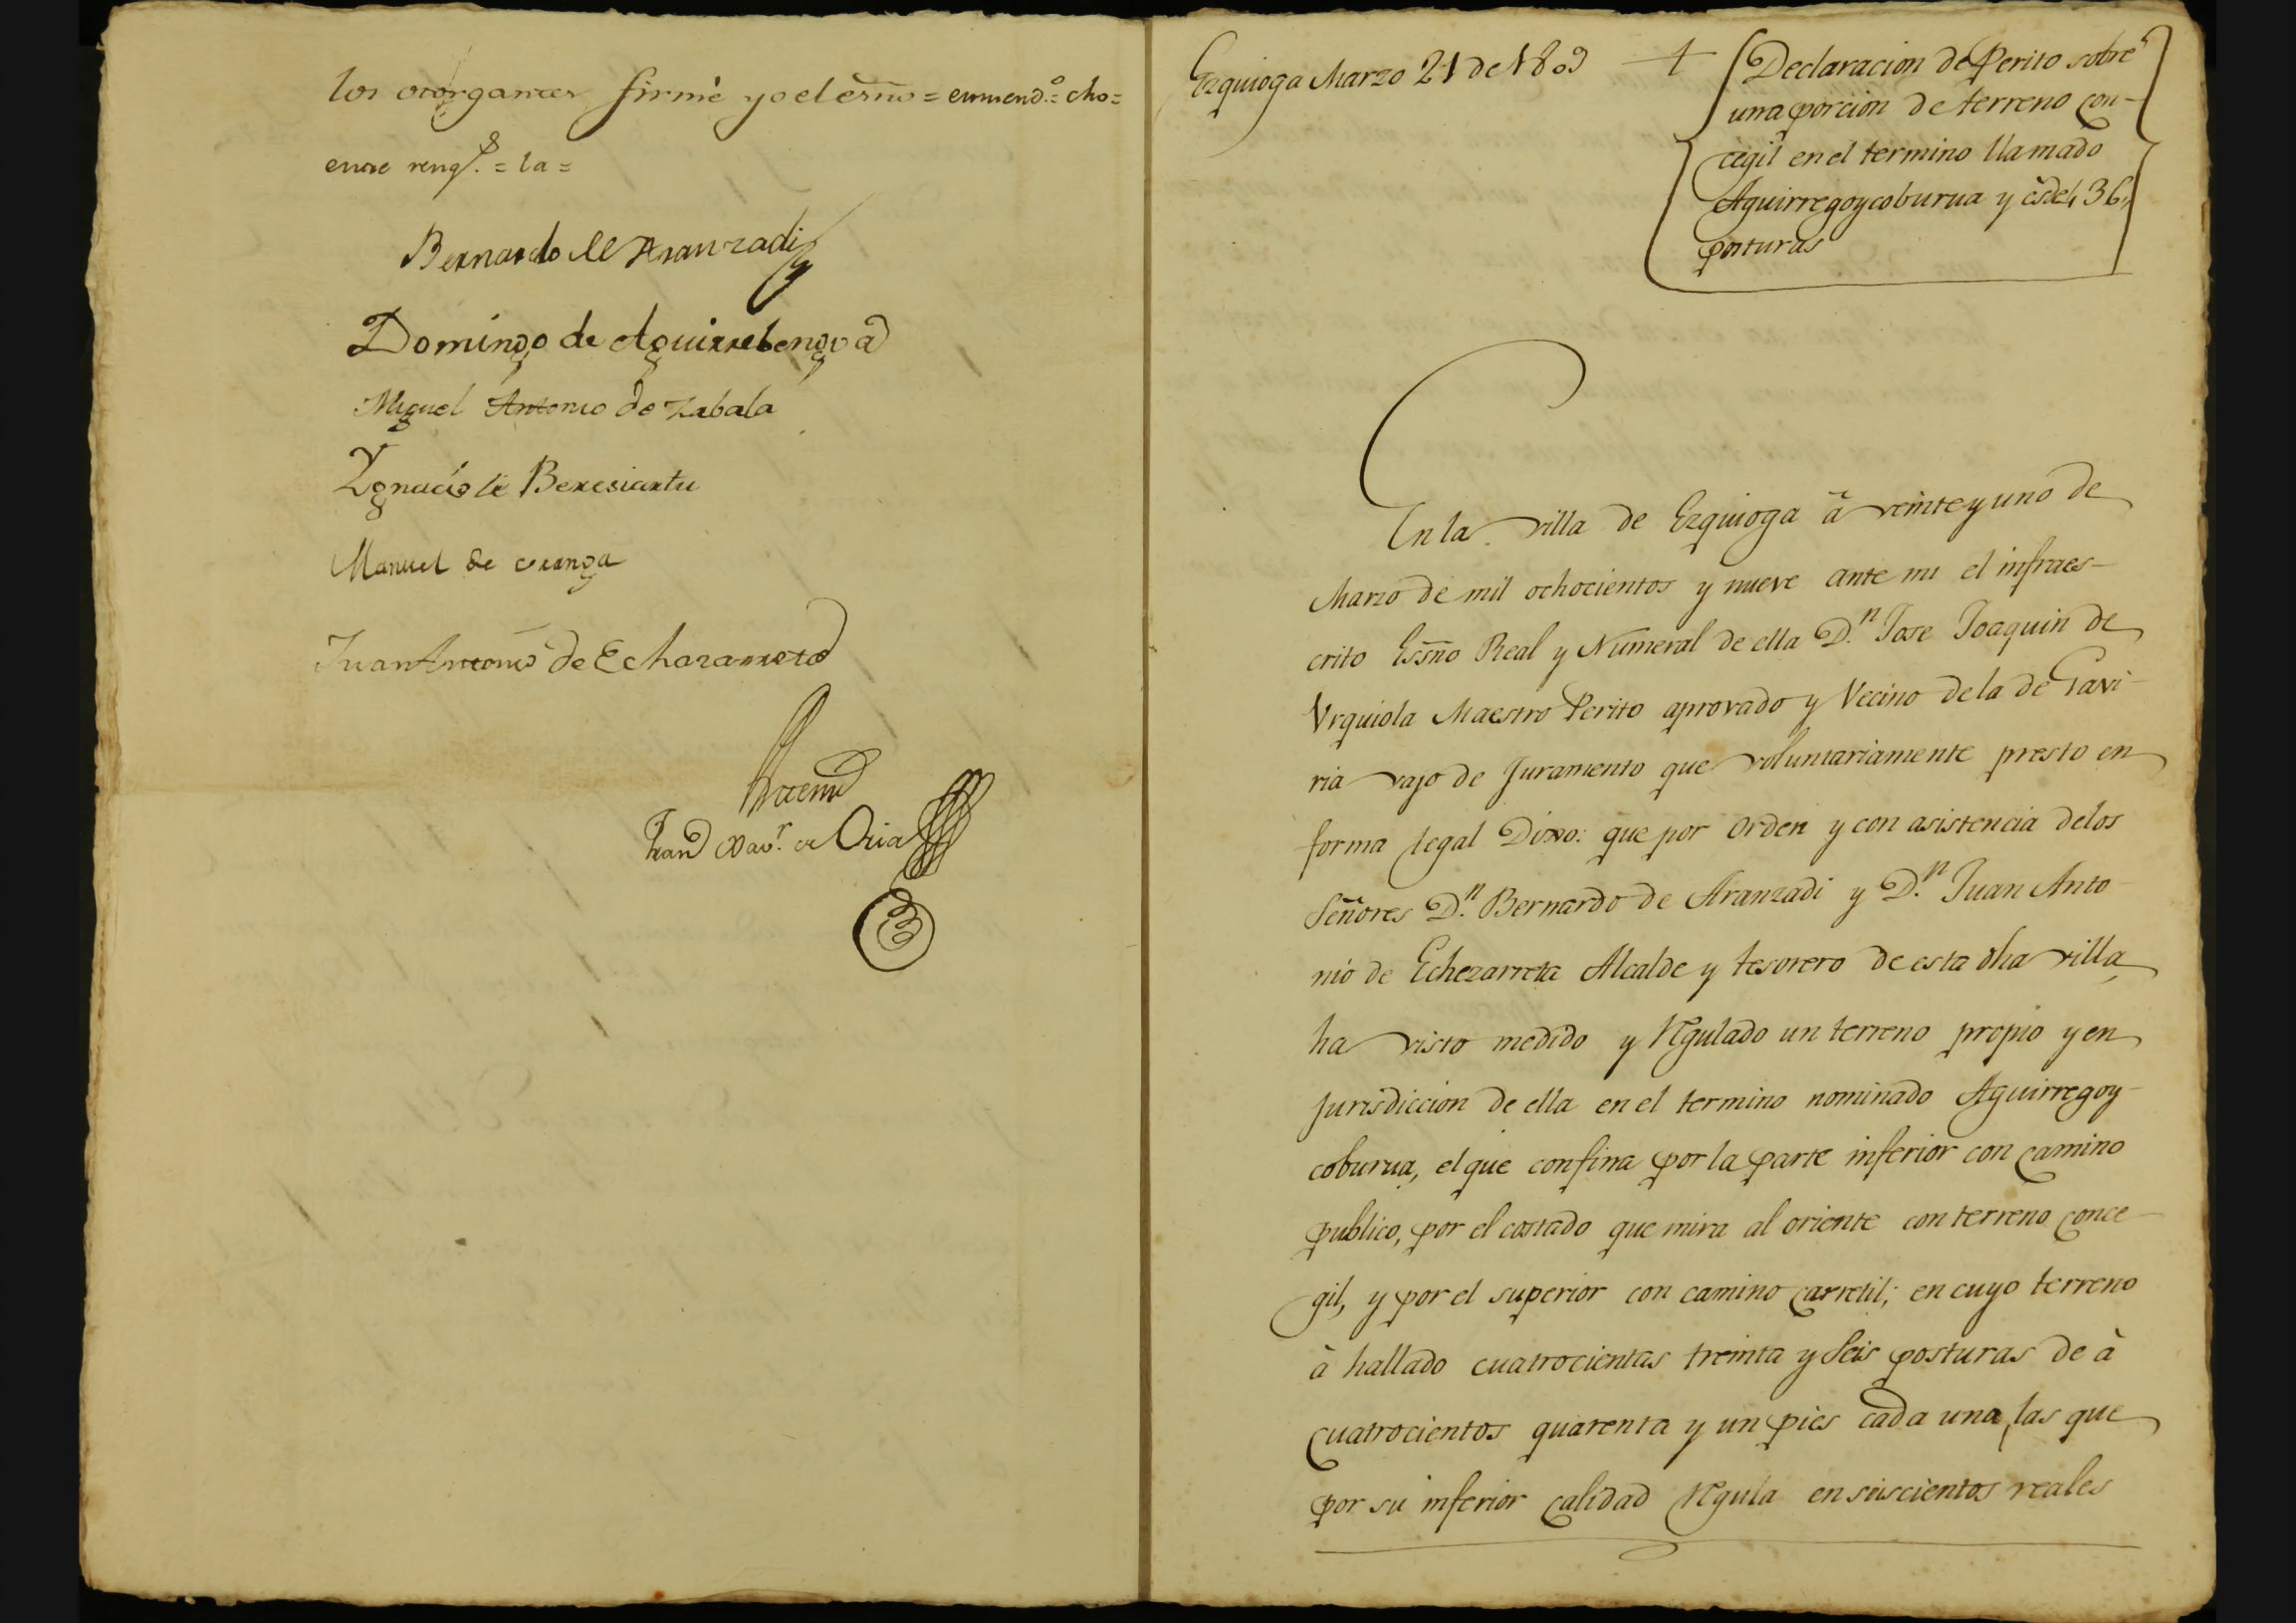 los otorgantes firmé yo el esño = enmend.º = cho =
entre rengs. = la =
Bernardo de Aranzadi
Domingo de Aguirrebengoa
Miguel Antonio de Zabala
Ygnacio de Beresiartu
Manuel de
Juan Antonio de Echazarreta
Antemi
Fran.co Xav.r de Oria
Ezquioga Marzo 21 de 1809 +
Declaracion de Perito sobre
una porcion de terreno con-
cegil en el termino llamado
Aguirregoycoburua y es de 436
posturas
En la villa de Ezquioga â veinte y uno de
Marzo de mil ochocientos y nueve ante mi el infraes-
crito Essño Real y Numeral de ella D.n Jose Joaquin de
Vrquiola Maestro Perito aprovado y Vecino de la de Gavi-
ria vajo de Juramento que voluntariamente presto en
forma legal Dixo: que por orden y con asistencia de los
Señores D.n Bernardo de Aranzadi y D.n Juan Anto-
nio de Echezarreta Alcalde y tesorero de esta dha villa,
ha visto medido y Regulado un terreno propio y en
Jurisdiccion de ella en el termino nominado Aguirregoy-
coburua, el que confina por la parte inferior con camino
publico, por el costado que mira al oriente con terreno conce-
gil, y por el superior con camino carretil; en cuyo terreno
à hallado cuatrocientas treinta y Seis posturas de à
cuatrocientos quarenta y un pies cada una, las que
por su inferior calidad Regula en seiscientos reales